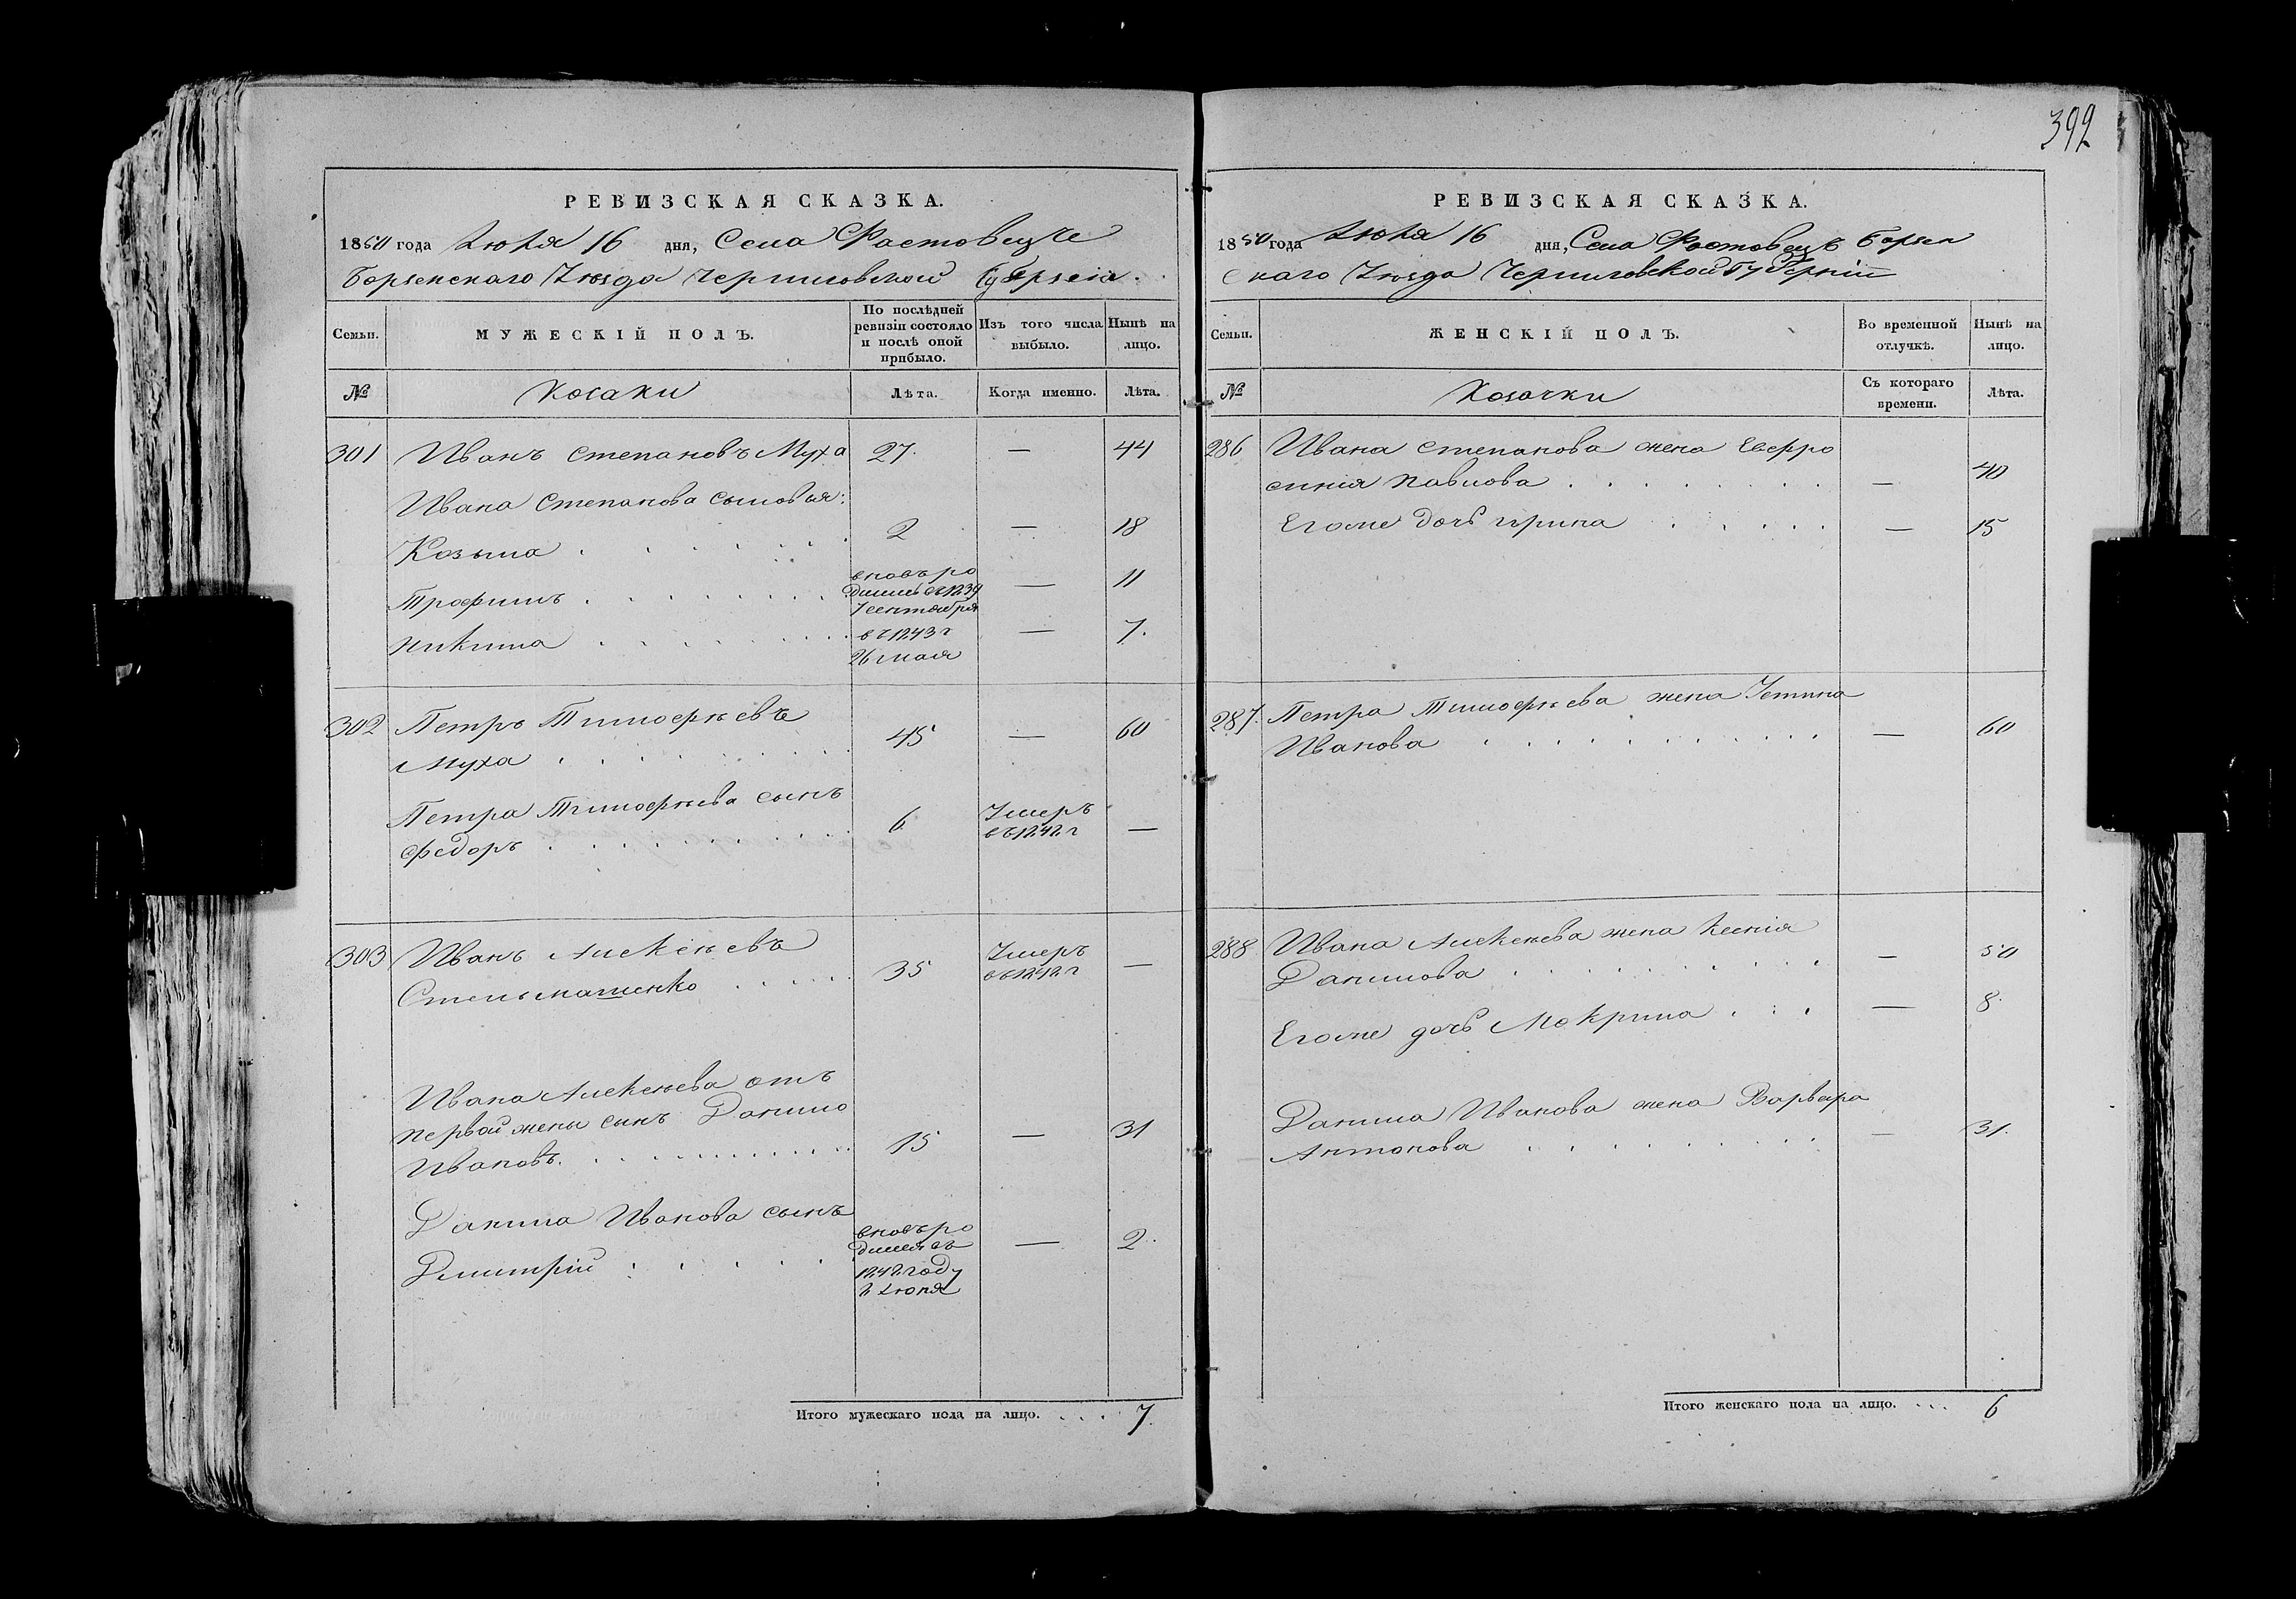 392
РЕВИЗСКАЯ СКАЗКА.
1850 года Июля 16 дня, Села Фастовецъ
Борзенскаго Уѣзда Черниговской Губерніи.
Семьи. МУЖЕСКІЙ ПОЛЪ. По послѣдней ревизіи состояло и послѣ оной прибыло. Изъ того числа выбыло. Нынѣ на лицо.
№ Козаки Лѣта. Когда именно. Лѣта.
301 Иванъ Степановъ Муха 27. — 44
Ивана Степанова сыновья:
Козьма 2 — 18
Трофимъ вновь родился въ 1839 7 сентября — 11
Никита въ 1843 г 26 мая — 7.
302 Петръ Тимофѣевъ
Муха 45 — 60
Петра Тимофѣева сынъ
Федоръ 6 Умеръ въ 1842 г —
303 Иванъ Алексѣевъ
Стельмашенко 35 Умеръ въ 1842 г —
Ивана Алексѣева отъ
первой жены сынъ Данило
Ивановъ. 15 — 31
Данила Иванова сынъ
Дмитрій вновь родился въ 1848 году 2 Июня — 2.
Итого мужескаго пола на лицо. 7.
РЕВИЗСКАЯ СКАЗКА.
1850 года Июля 16 дня, Села Фастовецъ Борзен
скаго Уѣзда Черниговской Губерніи
Семьи. ЖЕНСКІЙ ПОЛЪ. Во временной отлучкѣ. Нынѣ на лицо.
№ Козачки Съ котораго времени. Лѣта.
286 Ивана Степанова жена Евфро
синія Павлова — 40
Егоже дочь Ирина — 15
287. Петра Тимофѣева жена Устина
Иванова — 60
288 Ивана Алексѣева жена Ксенія
Данилова — 50
Егоже дочь Мокрина — 8.
Данила Иванова жена Варвара
Антонова — 31.
Итого женскаго пола на лицо. 6